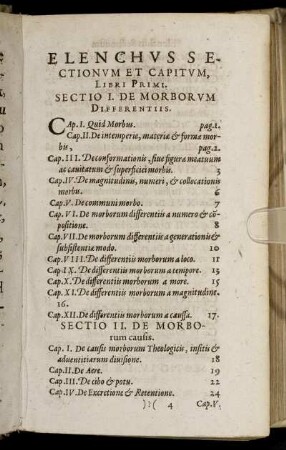 ELENCHVS SE-
CTIONVM ET CAPITVM,
LIBRI PRIMI.
SECTIO I. DE MORBORVM
DIFFERENTIIS.
CAp. I. Quid Morbus. pag. 1.
Cap. II. De intemperie, materiæ & formæ mor-
bis, pag. 2.
Cap. III. De conformationis, siue figuræ meatuum
ac cauitatum & superficiei morbis. 3
Cap. IV. De magnitudinis, numeri, & collocationis
morbis. 6
Cap. V. De communi morbo. 7
Cap. VI. De morborum differentiis a numero & cō-
positione. 8
Cap. VII. De morborum differentiis a generationis &
subsistentiæ modo. 10
Cap. VIII. De differentiis morborum a loco. 11
Cap. IX. De differentiis morborum a tempore. 13
Cap. X. De differentiis morborum a more. 15
Cap. XI. De differentiis morborum a magnitudine.
16.
Cap. XII. De differentiis morborum a caussa. 17.
SECTIO II. DE MORBO-
rum causis.
Cap. I. De causis morborum Theologicis, insitis &
aduentitiarum diuisione. 18
Cap. II. De Aere. 19
Cap. III. De cibo & potu. 22
Cap. IV. De Excretione & Retentione. 24
):( 4 Cap. V.